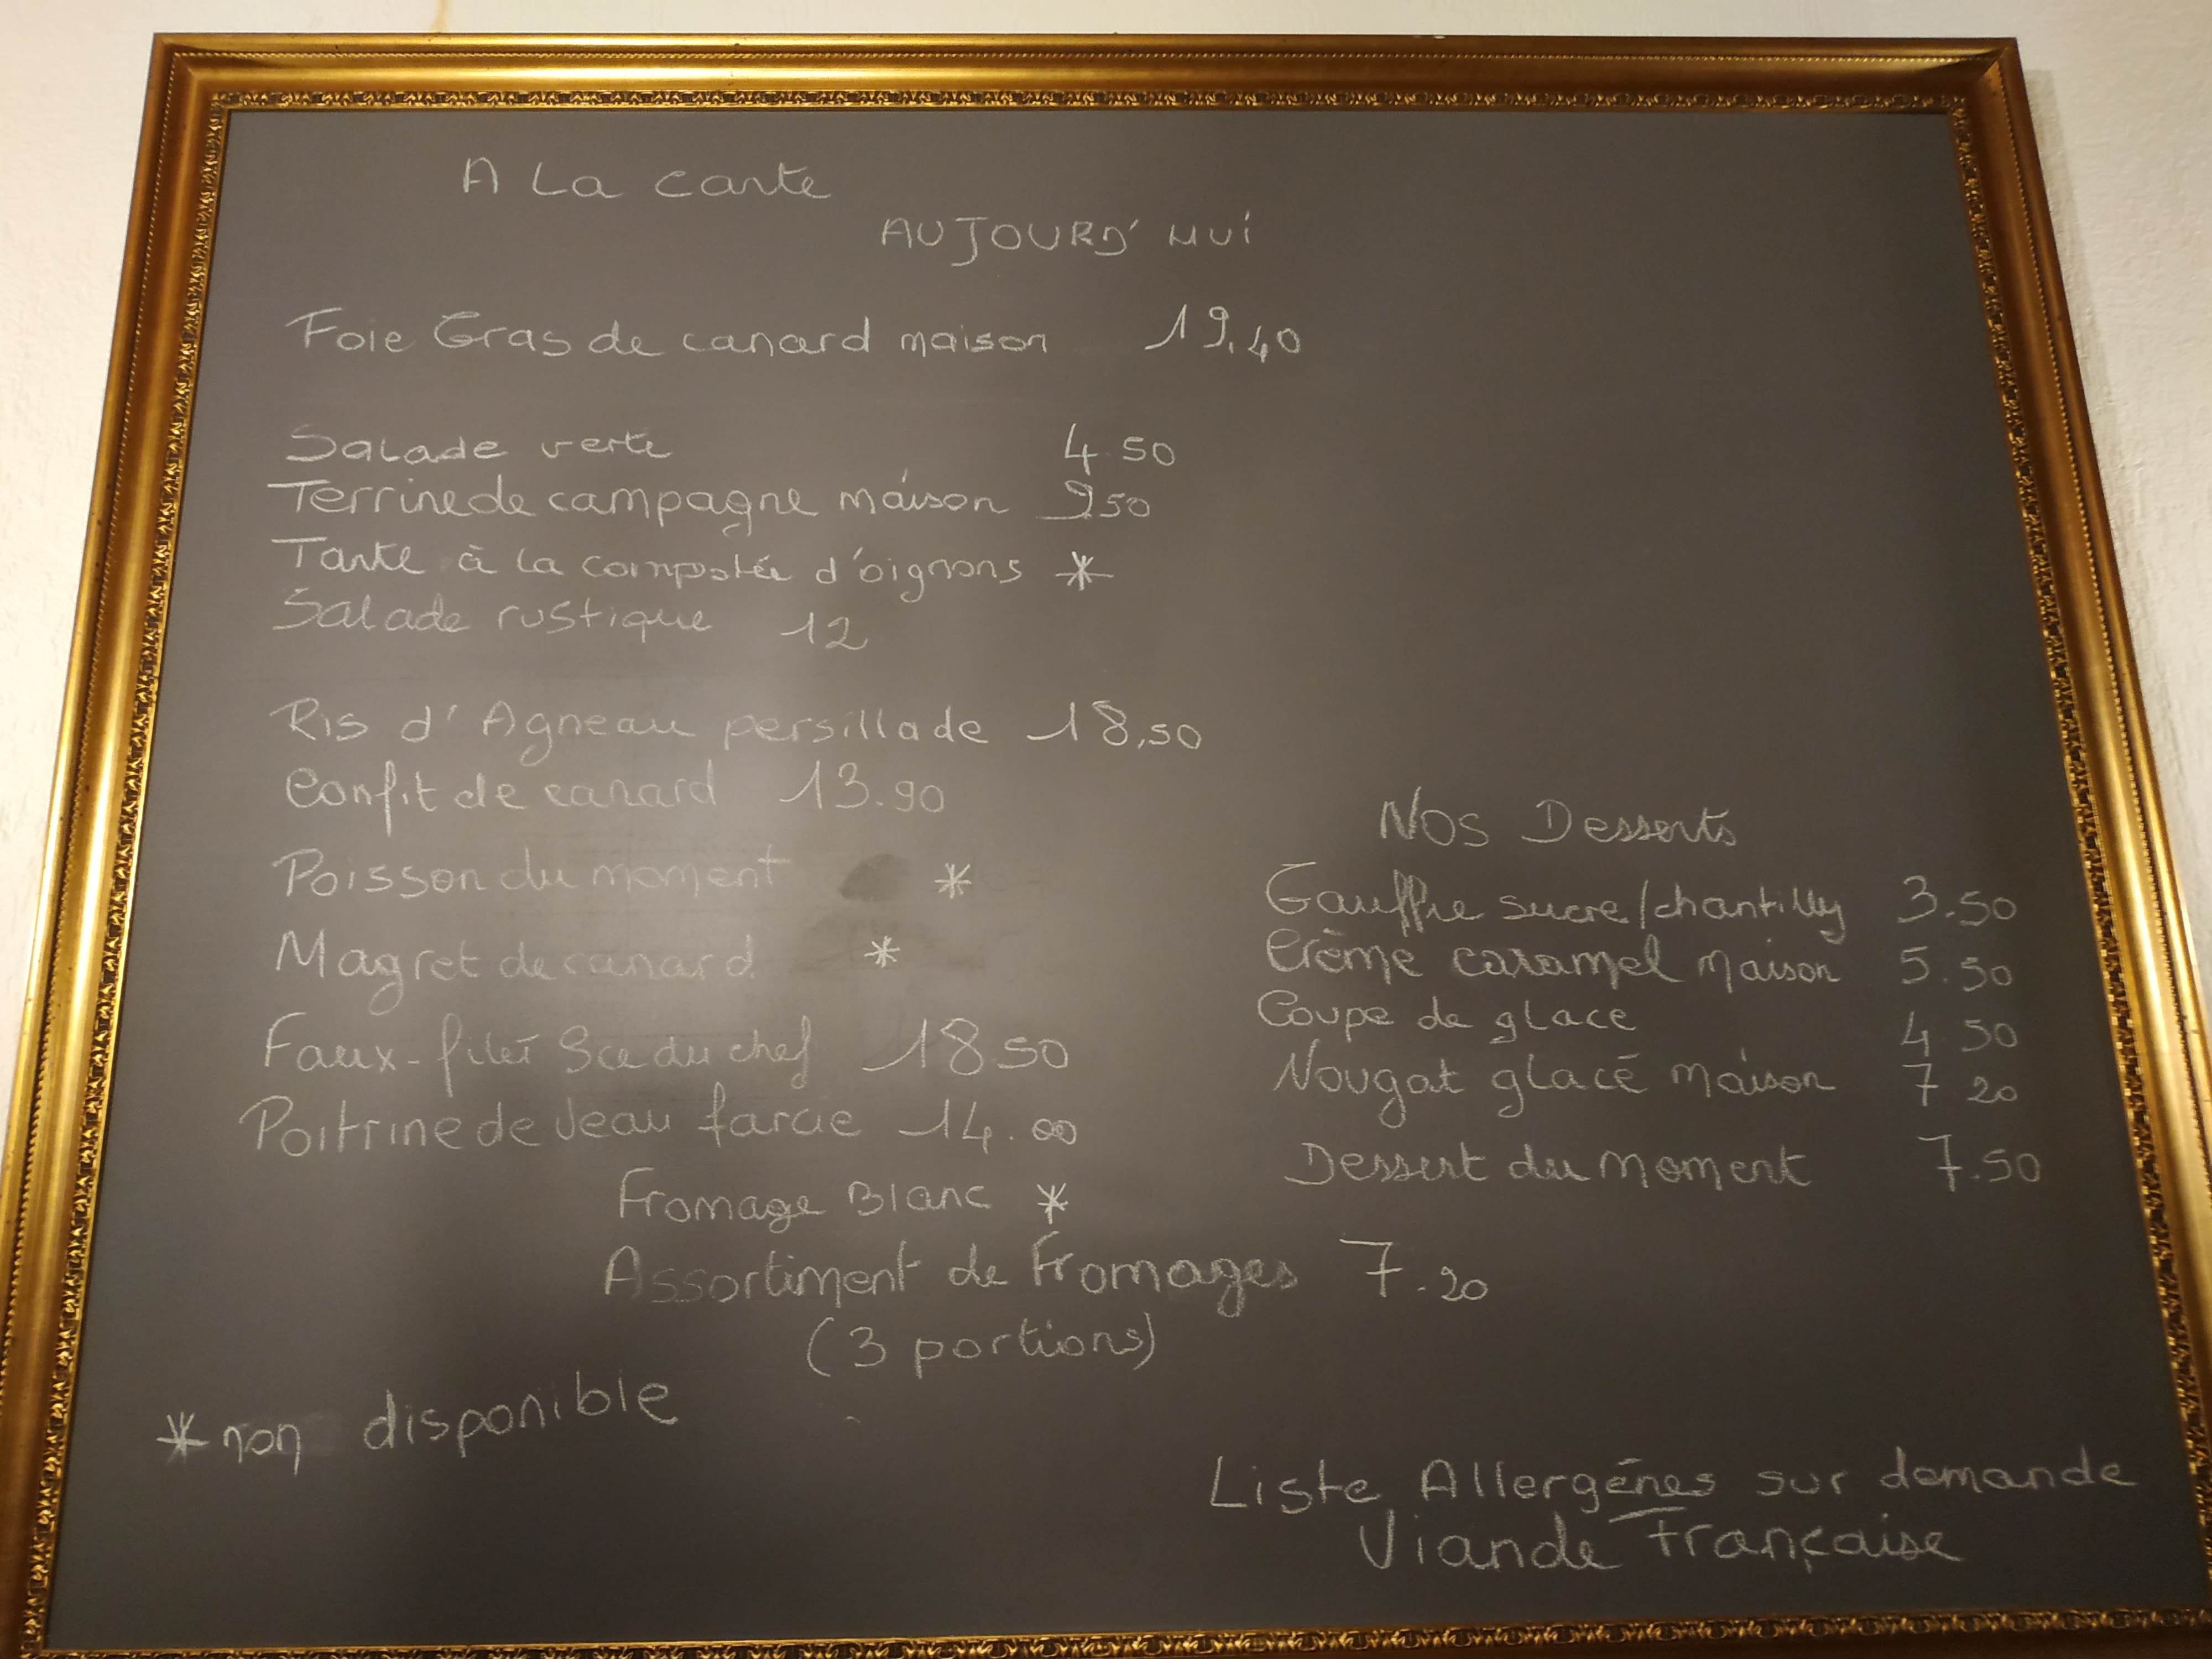 A La carte
AUJOURD'HUI
Foie Gras de canard maison 19.40
Salade verte 4.50
Terrine de campagne maison 9.50
Tarte à la compotée d'oignons *
Salade rustique 12
Ris d'Agneau persillade 18,50
Confit de canard 13.90
Poisson du moment *
Magret de canard *
Faux-filet Sce du chef 18.50
Poitrine de veau farcie 14.00
Fromage Blanc *
Assortiment de Fromages 7.20
(3 portions)
* non disponible
Nos Desserts
Gauffre sucre/chantilly 3.50
Crème caramel maison 5.50
Coupe de glace 4.50
Nougat glacé maison 7.20
Dessert du moment 7.50
Liste Allergènes sur demande
Viande Française